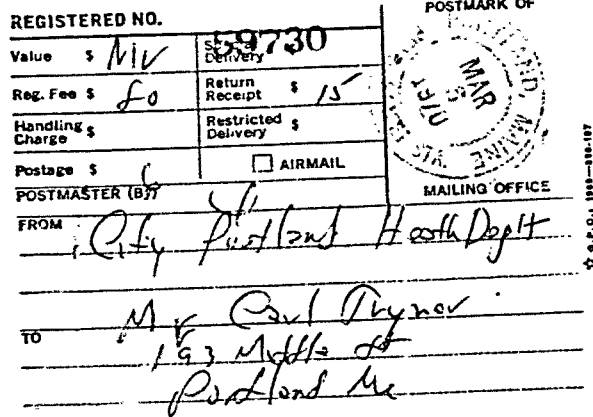 REGISTERED NO.
59730
POSTMARK OF
Value $ NV
Special Delivery
Reg. Fee $ 80
Return Receipt $ 15
Handling Charge $
Restricted Delivery $
Postage $ 6
AIRMAIL
POSTMASTER (By)
MAILING OFFICE
PORTLAND, MAINE
MAR
1970
FROM City Portland Health Dep't
TO Mr Carl
193 Middle St
Portland Me